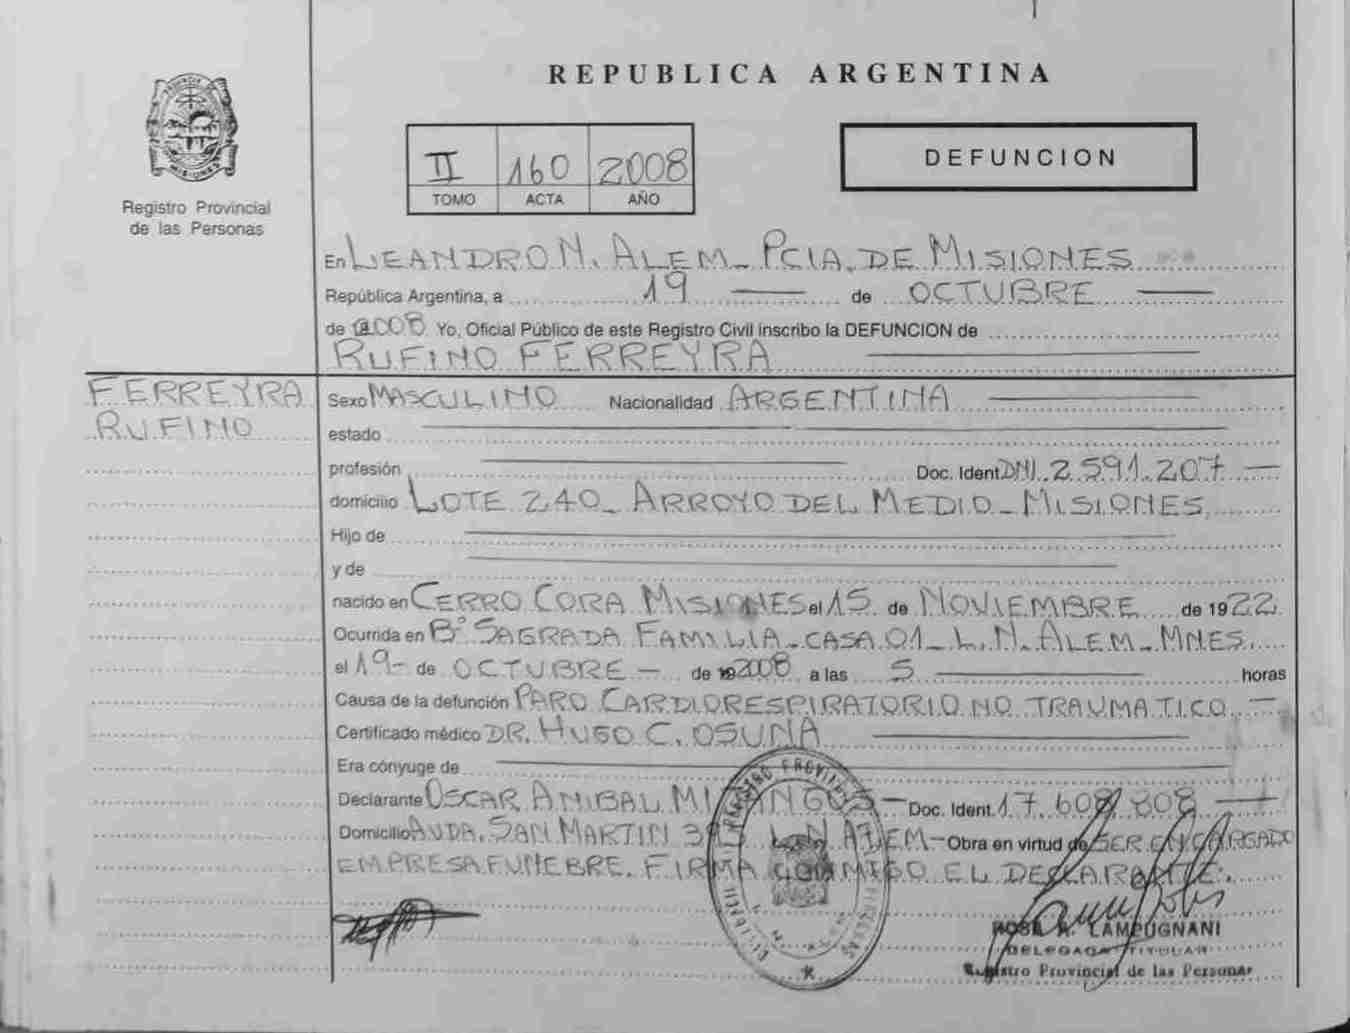 REPUBLICA ARGENTINA
MISIONES
Registro Provincial
de las Personas
II 160 2008
TOMO ACTA AÑO
DEFUNCION
En LEANDRO N. ALEM - PCIA. DE MISIONES
República Argentina, a 19 de OCTUBRE
de 2008 Yo, Oficial Público de este Registro Civil inscribo la DEFUNCION de
RUFINO FERREYRA
FERREYRA
RUFINO
Sexo MASCULINO Nacionalidad ARGENTINA
estado
profesión Doc. Ident. DNI. 2.591.207
domicilio LOTE 240 - ARROYO DEL MEDIO - MISIONES
Hijo de
y de
nacido en CERRO CORA MISIONES el 15 de NOVIEMBRE de 1922
Ocurrida en B° SAGRADA FAMILIA - CASA 01 - L. N. ALEM - MNES.
el 19 - de OCTUBRE - de 2008 a las 5 horas
Causa de la defunción PARO CARDIORESPIRATORIO NO TRAUMATICO -
Certificado médico DR. HUGO C. OSUNA
Era cónyuge de
Declarante OSCAR ANIBAL Doc. Ident. 17.609.808
Domicilio AVDA. SAN MARTIN L. N. ALEM - Obra en virtud de SER ENCARGADO
EMPRESA FUNEBRE. FIRMA CONMIGO EL DECLARANTE.
ROSA A. LAMPUGNANI
DELEGADA TITULAR
Registro Provincial de las Personas